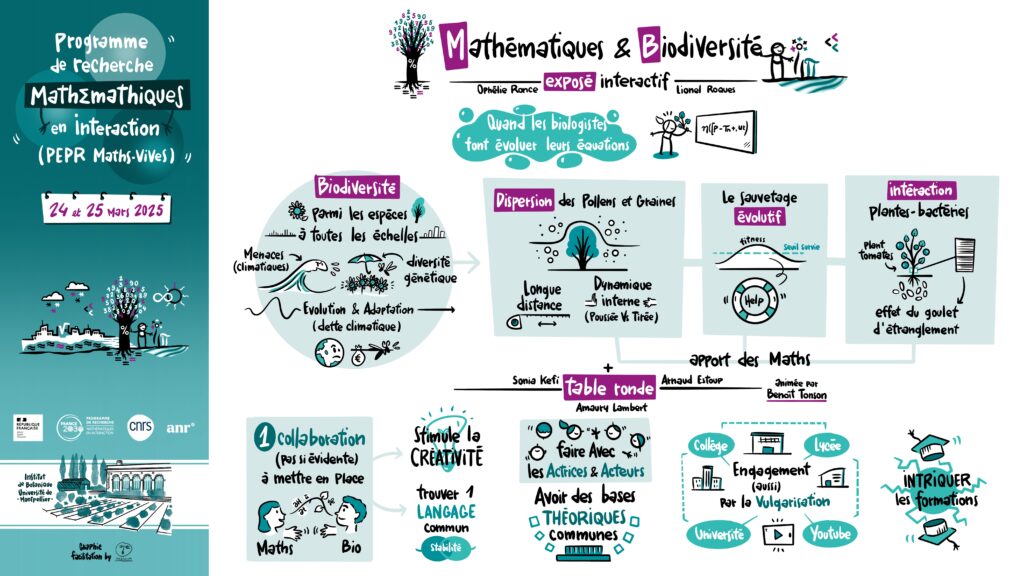 Programme
de recherche
Mathémathiques
en interaction
(PEPR Maths-Vives)
24 et 25 Mars 2025
RÉPUBLIQUE
FRANÇAISE
FRANCE
2030
PROGRAMME
DE RECHERCHE
MATHÉMATIQUES
EN INTERACTION
cnrs
anr
Institut
de Botanique
Université de
Montpellier
Graphic
facilitation by
Mathématiques & Biodiversité
exposé interactif
Ophélie Ronce
Lionel Roques
Quand les biologistes
font évoluer leurs équations
Biodiversité
Parmi les espèces
à toutes les échelles
Menaces
(climatiques)
diversité
génétique
Evolution & Adaptation
(dette climatique)
€
Dispersion des Pollens et Graines
Longue
distance
Dynamique
interne
(Poussée Vs Tirée)
Le sauvetage
évolutif
fitness
Seuil survie
Help
intéraction
plantes-bactéries
Plant
tomates
effet du goulet
d'étranglement
apport des Maths
+
Sonia Kefi
table ronde
Arnaud Estoup
Amaury Lambert
animée par
Benoît Tonson
1 Collaboration
(pas si évidente)
à mettre en Place
Maths
Bio
Stimule la
CRÉATIVITÉ
trouver 1
LANGAGE
commun
Stabilité
faire Avec
les Actrices & Acteurs
Avoir des bases
THÉORIQUES
communes
Collège
Lycée
Engagement
(aussi)
Par la Vulgarisation
Université
Youtube
iNTRIQUER
les formations